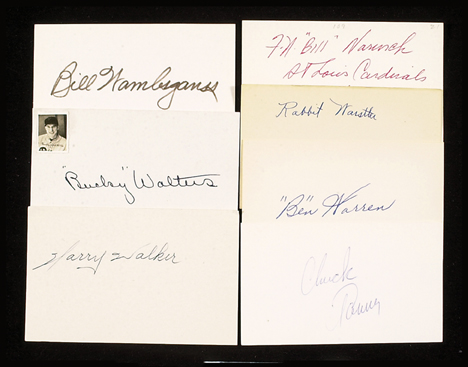 Bill Wambsganss
"Bucky" Walters
Harry Walker
F.A "Bill" Warwick
St Louis Cardinals
Rabbit Warstler
"Ben" Warren
Chuck
Tanner